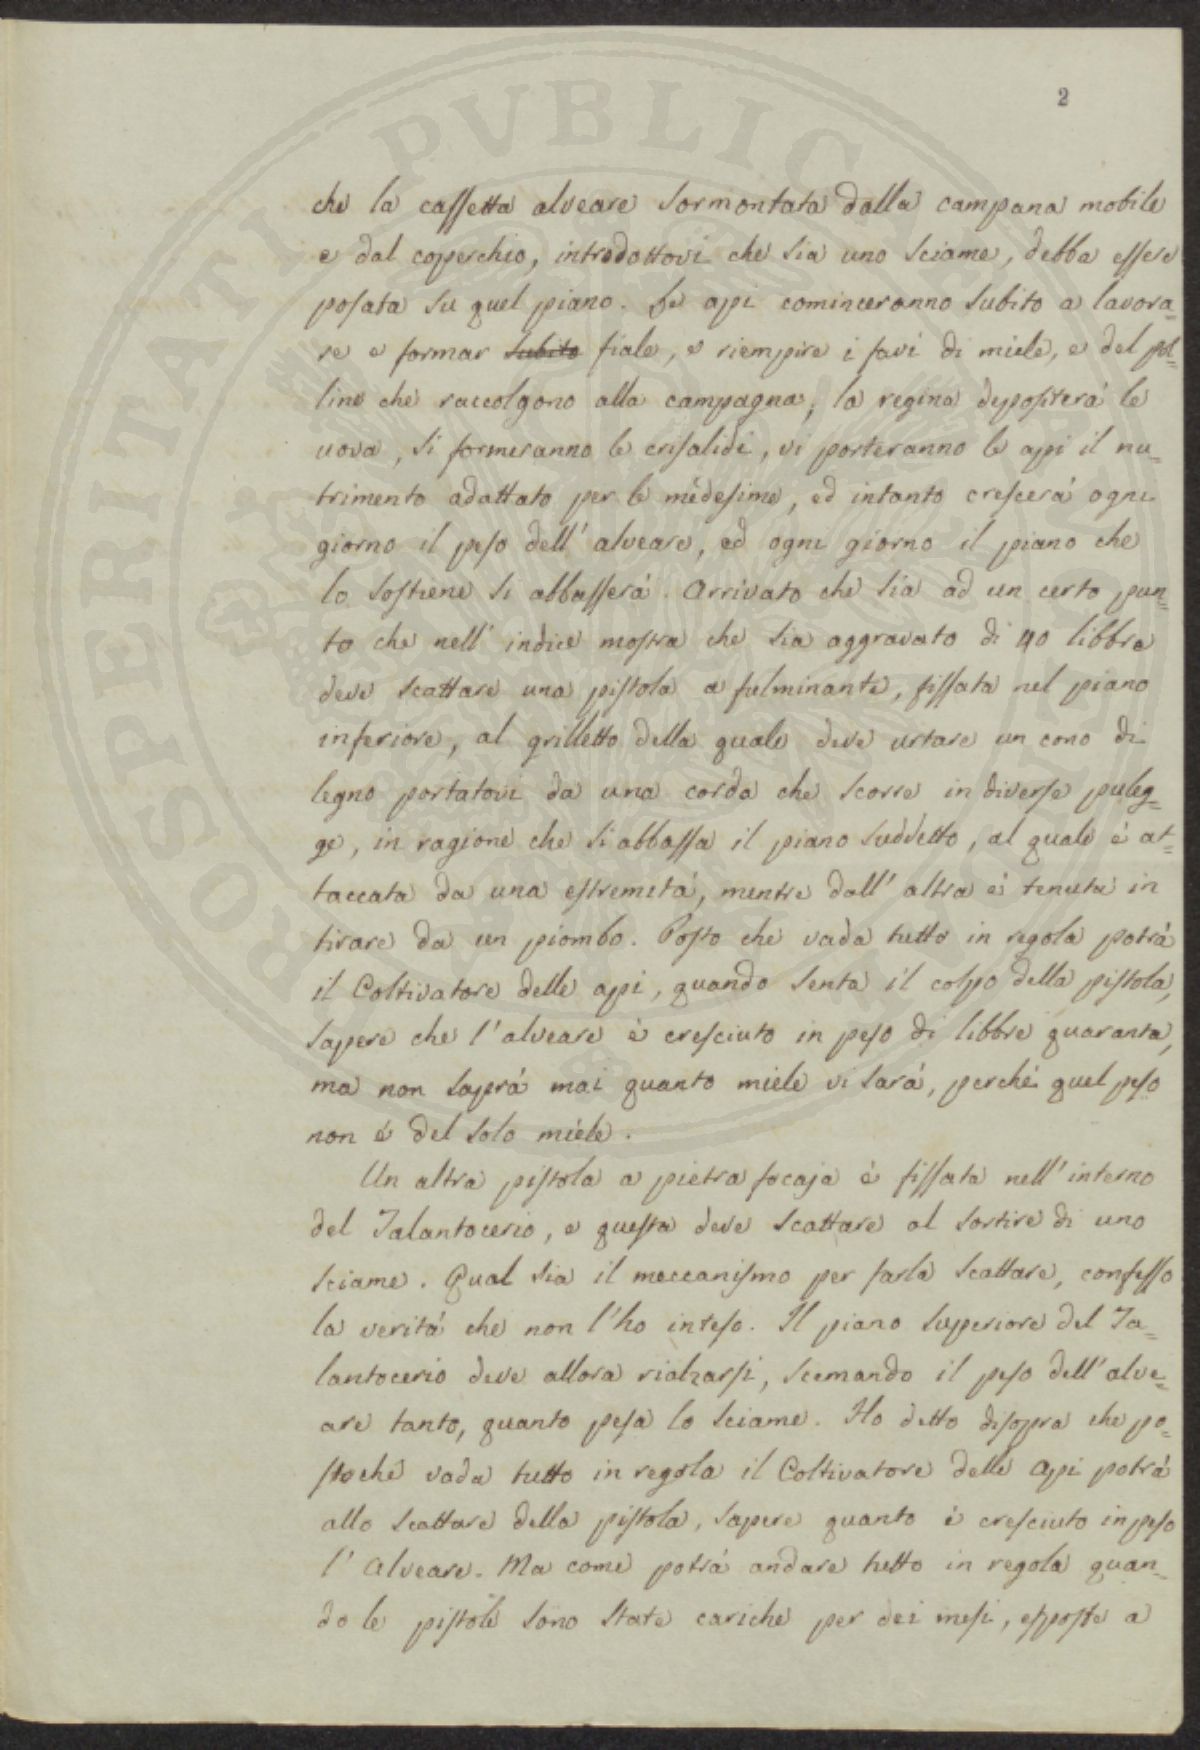 PROSPERITATI PVBLICAE
2
che la cassetta alveare sormontata dalla campana mobile
e dal coperchio, introdottovi che sia uno sciame, debba essere
posata su quel piano. Le api cominceranno subito a lavora=
re e formar subito fiale, e riempire i favi di miele, e del pol=
line che raccolgono alla campagna; la regina depositerá le
uova, si formeranno le crisalidi, vi porteranno le api il nu=
trimento adattato per le medesime, ed intanto crescerá ogni
giorno il peso dell' alveare, ed ogni giorno il piano che
lo sostiene si abbasserá. Arrivato che sia ad un certo pun=
to che nell' indice mostra che sia aggravato di 40 libbre
deve scattare una pistola a fulminante, fissata nel piano
inferiore, al grilletto della quale deve urtare un cono di
legno portatovi da una corda che scorre in diverse puleg=
ge, in ragione che si abbassa il piano suddetto, al quale é at=
taccata da una estremitá, mentre dall' altra é tenuta in
tirare da un piombo. Posto che vada tutto in regola potrá
il Coltivatore delle api, quando senta il colpo della pistola,
sapere che l' alveare é cresciuto in peso di libbre quaranta,
ma non saprá mai quanto miele vi sará, perché quel peso
non é del solo miele.
Un altra pistola a pietra focaja é fissata nell' interno
del Talantocerio, e questa deve scattare al sortire di uno
sciame. Qual sia il meccanismo per farla scattare, confesso
la veritá che non l' ho inteso. Il piano superiore del Ta=
lantocerio deve allora rialzarsi, scemando il peso dell' alve=
are tanto, quanto pesa lo sciame. Ho detto disopra che po=
stoché vada tutto in regola il Coltivatore delle Api potrá
allo scattare della pistola, sapere quanto é cresciuto in peso
l' Alveare. Ma come potrá andare tutto in regola quan=
do le pistole sono state cariche per dei mesi, esposte a